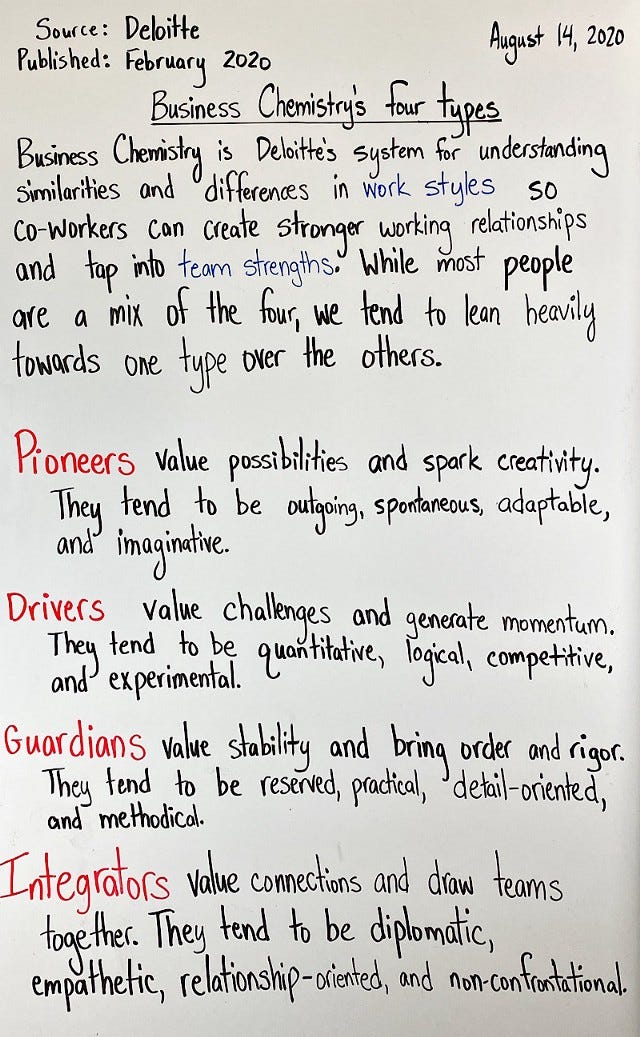 Source: Deloitte
August 14, 2020
Published: February 2020
Business Chemistry's four types
Business Chemistry is Deloitte's system for understanding
similarities and differences in work styles so
co-workers can create stronger working relationships
and tap into team strengths. While most people
are a mix of the four, we tend to lean heavily
towards one type over the others.
Pioneers value possibilities and spark creativity.
They tend to be outgoing, spontaneous, adaptable,
and imaginative.
Drivers value challenges and generate momentum.
They tend to be quantitative, logical, competitive,
and experimental.
Guardians value stability and bring order and rigor.
They tend to be reserved, practical, detail-oriented,
and methodical.
Integrators value connections and draw teams
together. They tend to be diplomatic,
empathetic, relationship-oriented, and non-confrontational.